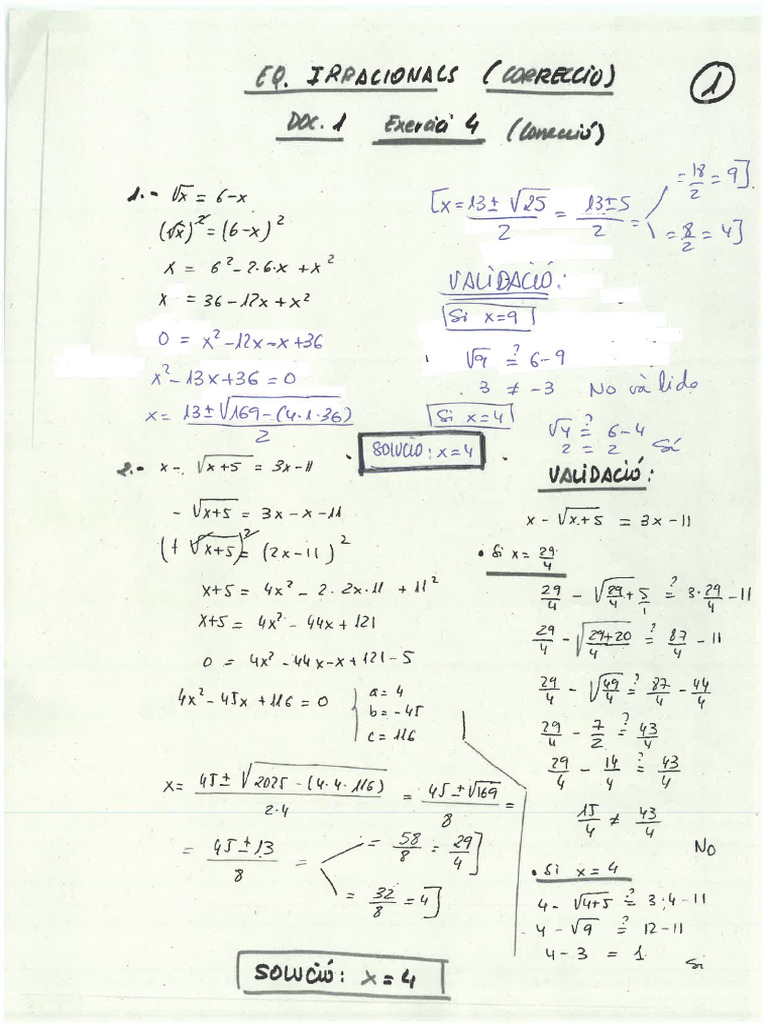 EQ. IRRACIONALS (CORRECCIÓ)
1
DOC. 1 Exercici 4 (Correcció)
1.- √x = 6-x
(√x)² = (6-x)²
x = 6² - 2·6·x + x²
x = 36 - 12x + x²
0 = x² - 12x - x + 36
x² - 13x + 36 = 0
x = (13 ± √(169 - (4·1·36)))/2
[x = (13 ± √25)/2 = (13 ± 5)/2 =
= 18/2 = 9].
= 8/2 = 4]
VALIDACIÓ:
Si x=9
√9 ?= 6-9
3 ≠ -3 No vàlido
Si x=4
√4 ?= 6-4
2 = 2 Sí
SOLUCIÓ: x=4
2.- x - √(x+5) = 3x - 11
- √(x+5) = 3x - x - 11
(+ √(x+5))² = (2x-11)²
x+5 = 4x² - 2·2x·11 + 11²
x+5 = 4x² - 44x + 121
0 = 4x² - 44x - x + 121 - 5
4x² - 45x + 116 = 0
a = 4
b = -45
c = 116
x = (45 ± √(2025 - (4·4·116)))/(2·4) = (45 ± √169)/8 =
= (45 ± 13)/8 =
= 58/8 = 29/4]
= 32/8 = 4]
VALIDACIÓ:
x - √(x+5) = 3x - 11
• Si x = 29/4
29/4 - √(29/4 + 5/1) ?= 3·29/4 - 11
29/4 - √((29+20)/4) ?= 87/4 - 11
29/4 - √(49/4) ?= 87/4 - 44/4
29/4 - 7/2 ?= 43/4
29/4 - 14/4 ?= 43/4
15/4 ≠ 43/4
No
• Si x = 4
4 - √(4+5) ?= 3·4 - 11
4 - √9 ?= 12 - 11
4 - 3 = 1 Si
SOLUCIÓ: x = 4